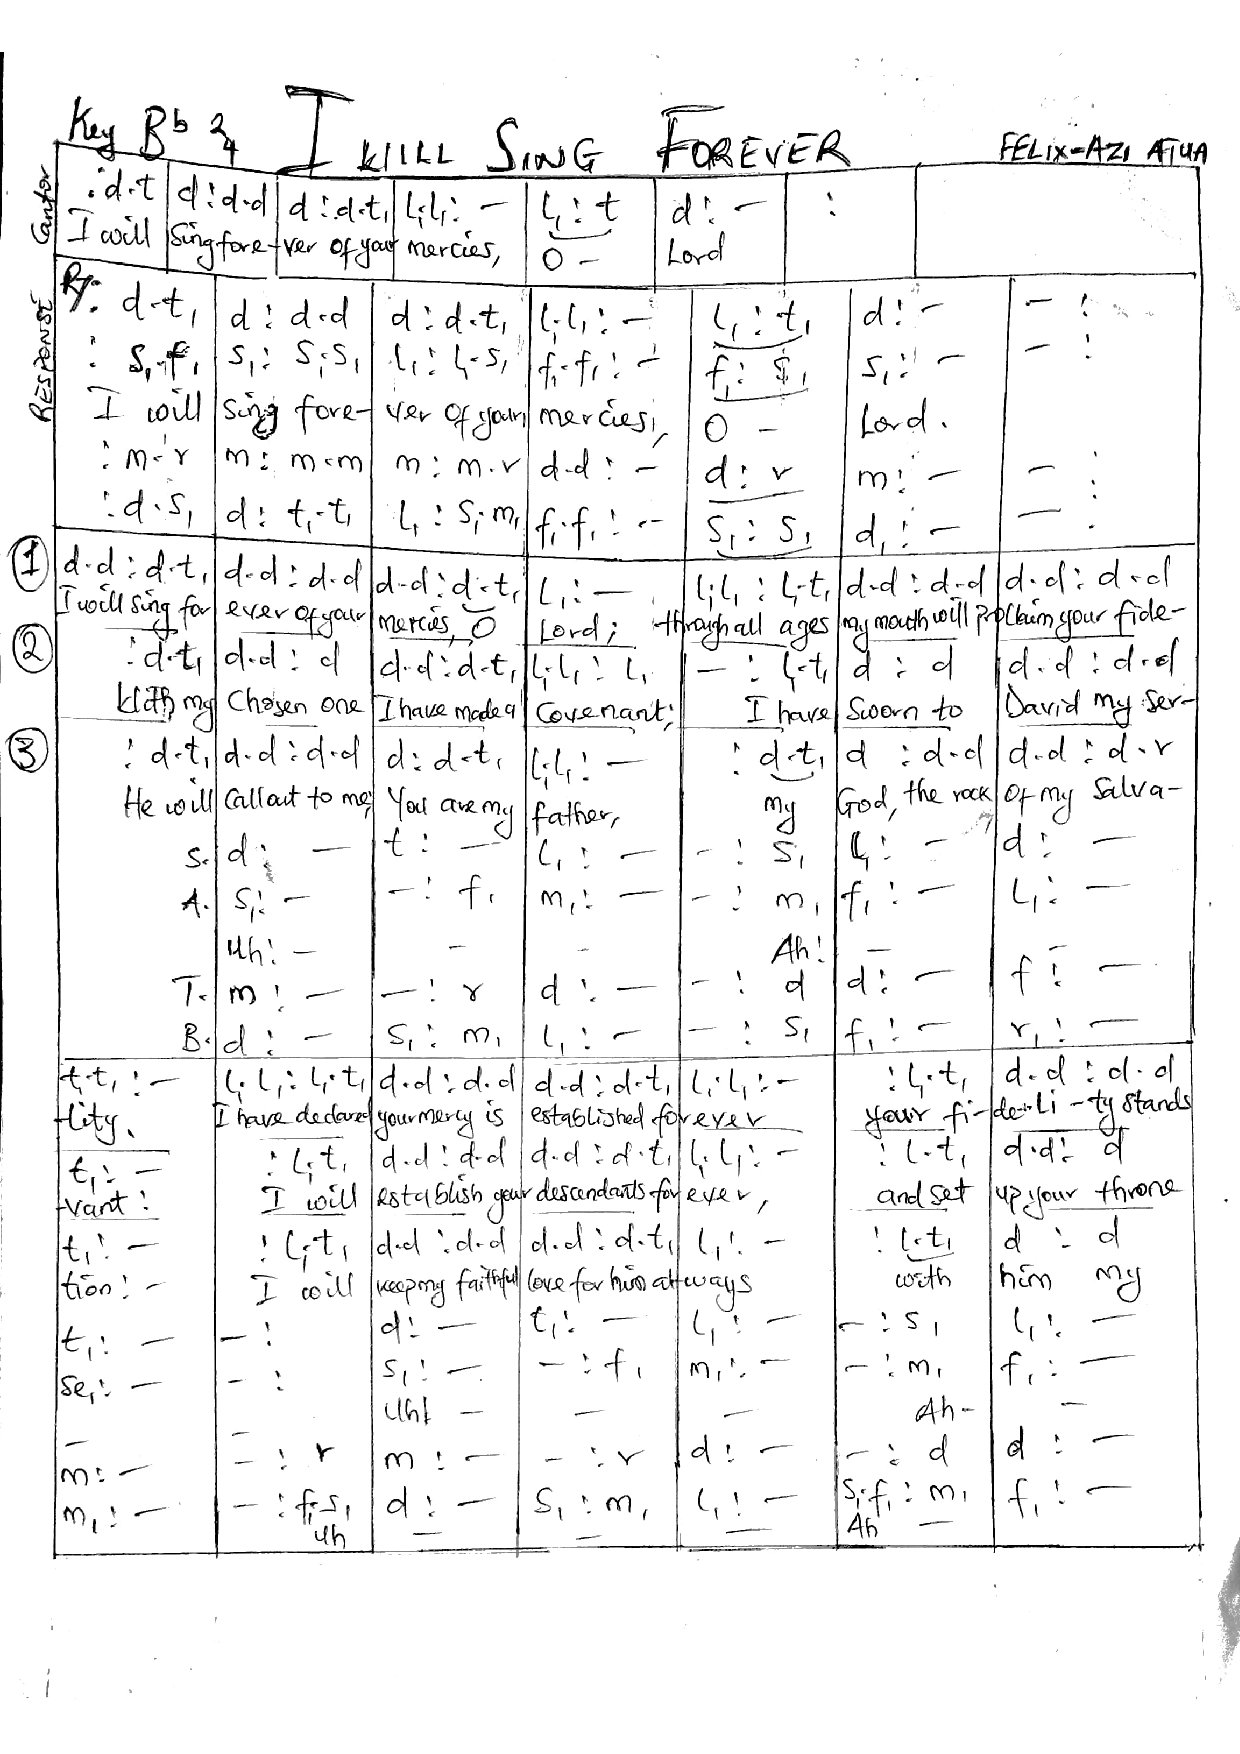 Key Bb 2/4 I WILL SING FOREVER FELIX-AZI ATUA
Cantor
:d.t | d:d.d | d:d.t, | l,.l,:— | l,:t | d:— | :
I will Sing fore-ver of your mercies, O - Lord
RESPONSE
R/: d.t, | d:d.d | d:d.t, | l,.l,:— | l,:t, | d:— | —:
:s,.f, | s,:s,.s, | l,:l,.s, | f,.f,:— | f,:s, | s,:— | —:
I will sing fore- ver of your mercies, O - Lord.
:m.r | m:m.m | m:m.r | d.d:— | d:r | m:— | —:
:d.s, | d:t,.t, | l,:s,.m, | f,.f,:— | s,:s, | d,:— | —:
① d.d:d.t, | d.d:d.d | d.d:d.t, | l,:— | l,.l,:l,.t, | d.d:d.d | d.d:d.d
I will sing for ever of your mercies, O Lord; through all ages my mouth will proclaim your fide-
② :d.t, | d.d:d | d.d:d.t, | l,.l,:l, | —:l,.t, | d:d | d.d:d.d
With my Chosen one I have made a Covenant; I have Sworn to David my ser-
③ :d.t, | d.d:d.d | d:d.t, | l,.l,:— | :d.t, | d:d.d | d.d:d.r
He will Call out to me, You are my father, my God, the rock of my Salva-
S. d:— | t:— | l,:— | —:s, | l,:— | d:—
A. s,:— | —:f, | m,:— | —:m, | f,:— | l,:—
Uh:— - - Ah! - -
T. m:— | —:r | d:— | —:d | d:— | f:—
B. d:— | s,:m, | l,:— | —:s, | f,:— | r,:—
t,.t,:— | l,.l,:l,.t, | d.d:d.d | d.d:d.t, | l,.l,:— | :l,.t, | d.d:d.d
lity. I have declared your mercy is established forever your fi-de-li-ty stands
t,:— | :l,.t, | d.d:d.d | d.d:d.t, | l,.l,:— | :l,.t, | d.d:d
vant: I will establish your descendants for ever, and set up your throne
t,:— | :l,.t, | d.d:d.d | d.d:d.t, | l,:— | :l,.t, | d:d
tion:— I will keep my faithful love for him always with him my
t,:— | —: | d:— | t,:— | l,:— | —:s, | l,:—
se,:— | —: | s,:— | —:f, | m,:— | —:m, | f,:—
- - Uh! - - - Ah- -
m:— | —:r | m:— | —:r | d:— | —:d | d:—
m,:— | —:f,.s, | d:— | s,:m, | l,:— | s,.f,:m, | f,:—
Uh - - - Ah -